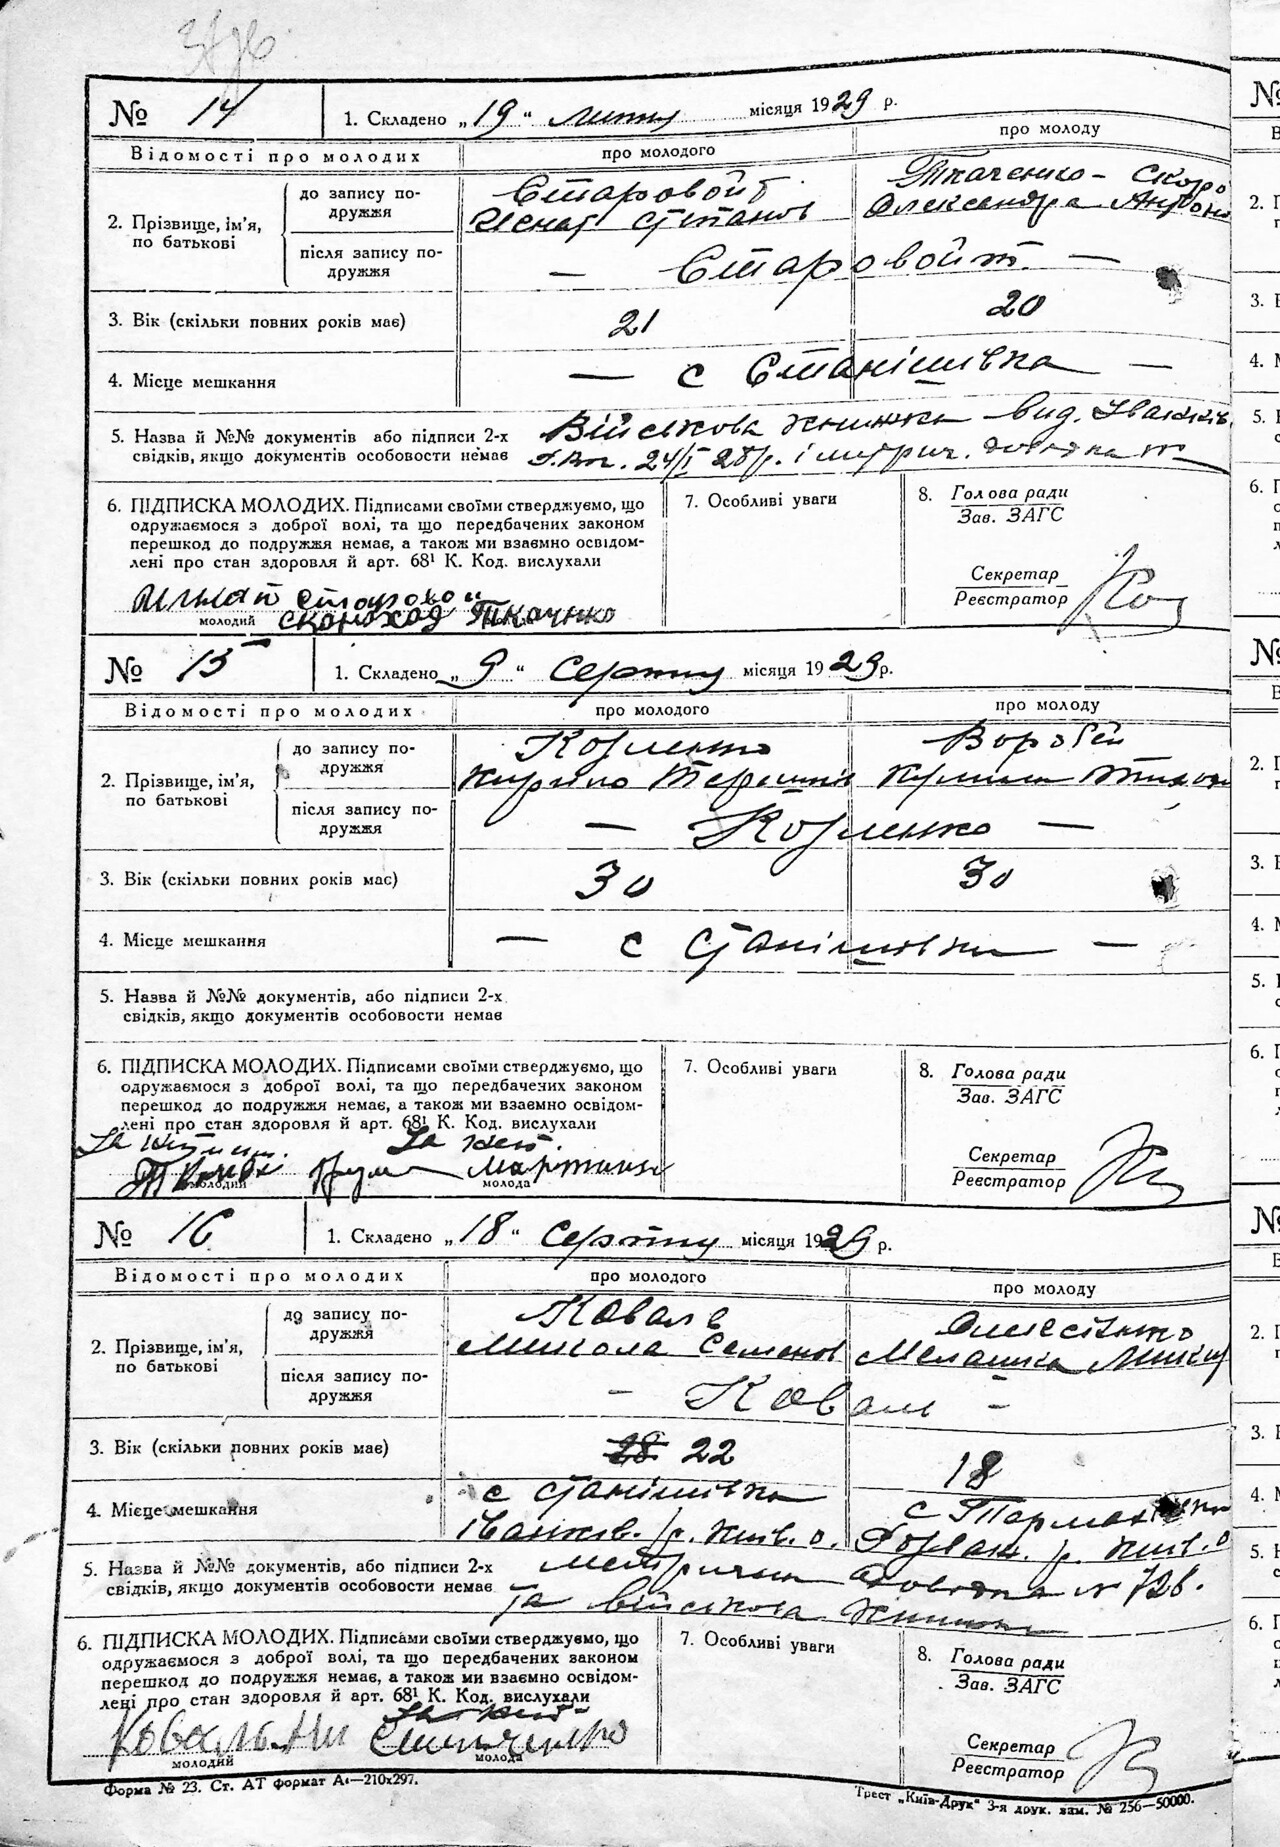 № 14
1. Складено „19“ лютня місяця 1929 р.
Відомості про молодих
про молодого
про молоду
2. Прізвище, ім'я, по батькові
до запису подружжя
Старовойт
Ткаченко-Скоро
Ігнат Степанов
Олександра Антоно
після запису подружжя
— Старовойт —
3. Вік (скільки повних років має)
21
20
4. Місце мешкання
— с Станішівка —
5. Назва й №№ документів або підписи 2-х
свідків, якщо документів особовости немає
Військова книжка вид. Іванків.
24/I 28р. і метрич. довідка
6. ПІДПИСКА МОЛОДИХ. Підписами своїми стверджуємо, що
одружаємося з доброї волі, та що передбачених законом
перешкод до подружжя немає, а також ми взаємно освідом-
лені про стан здоровля й арт. 68¹ К. Код. вислухали
молодий
Скороход Ткачнко
7. Особливі уваги
8. Голова ради
Зав. ЗАГС
Секретар
Реєстратор
№ 15
1. Складено „9“ серпня місяця 1929 р.
Відомості про молодих
про молодого
про молоду
2. Прізвище, ім'я, по батькові
до запису подружжя
Козленко
Воробей
Кирило Терешків
після запису подружжя
— Козленко —
3. Вік (скільки повних років має)
30
30
4. Місце мешкання
— с Станішовка —
5. Назва й №№ документів, або підписи 2-х
свідків, якщо документів особовости немає
6. ПІДПИСКА МОЛОДИХ. Підписами своїми стверджуємо, що
одружаємося з доброї волі, та що передбачених законом
перешкод до подружжя немає, а також ми взаємно освідом-
лені про стан здоровля й арт. 68¹ К. Код. вислухали
За
За
молодий
молода
7. Особливі уваги
8. Голова ради
Зав. ЗАГС
Секретар
Реєстратор
№ 16
1. Складено „18“ серпня місяця 1929 р.
Відомості про молодих
про молодого
про молоду
2. Прізвище, ім'я, по батькові
до запису подружжя
Коваль
Олексієнко
Микола Семенов
Мелашка Мики
після запису подружжя
– Коваль –
3. Вік (скільки повних років має)
28 22
18
4. Місце мешкання
с Станішівка
с
Іванків. р. Київ. о.
р. Київ. о
5. Назва й №№ документів, або підписи 2-х
свідків, якщо документів особовости немає
метрична довідка № 728.
та військова книжка
6. ПІДПИСКА МОЛОДИХ. Підписами своїми стверджуємо, що
одружаємося з доброї волі, та що передбачених законом
перешкод до подружжя немає, а також ми взаємно освідом-
лені про стан здоровля й арт. 68¹ К. Код. вислухали
Коваль
молодий
молода
7. Особливі уваги
8. Голова ради
Зав. ЗАГС
Секретар
Реєстратор
Форма № 23. Ст. АТ формат А₄—210x297.
Трест „Київ-Друк“ 3-я друк. зам. № 256—50000.